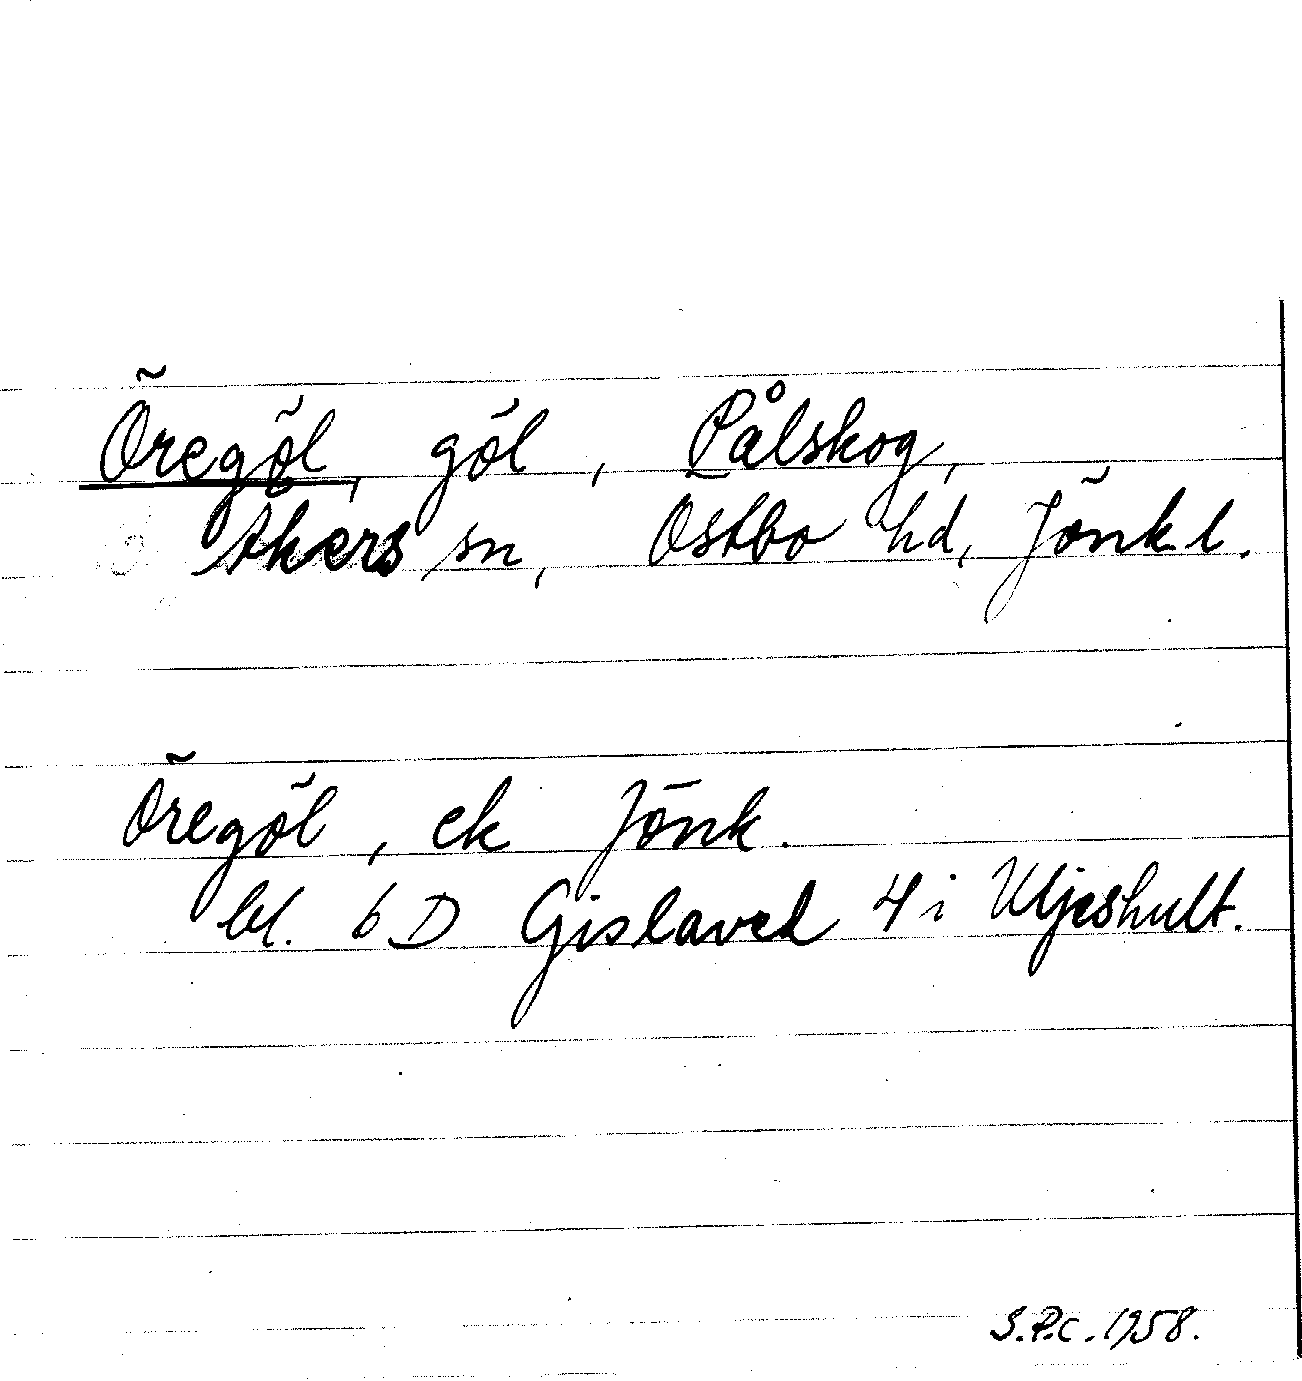 Öregöl, göl, Pålskog,
Åkers sn, Östbo hd, Jönk.l.
Öregöl, ek Jönk.
bl. 6 D Gislaved 4 i Uljeshult.
S.P.C. 1958.